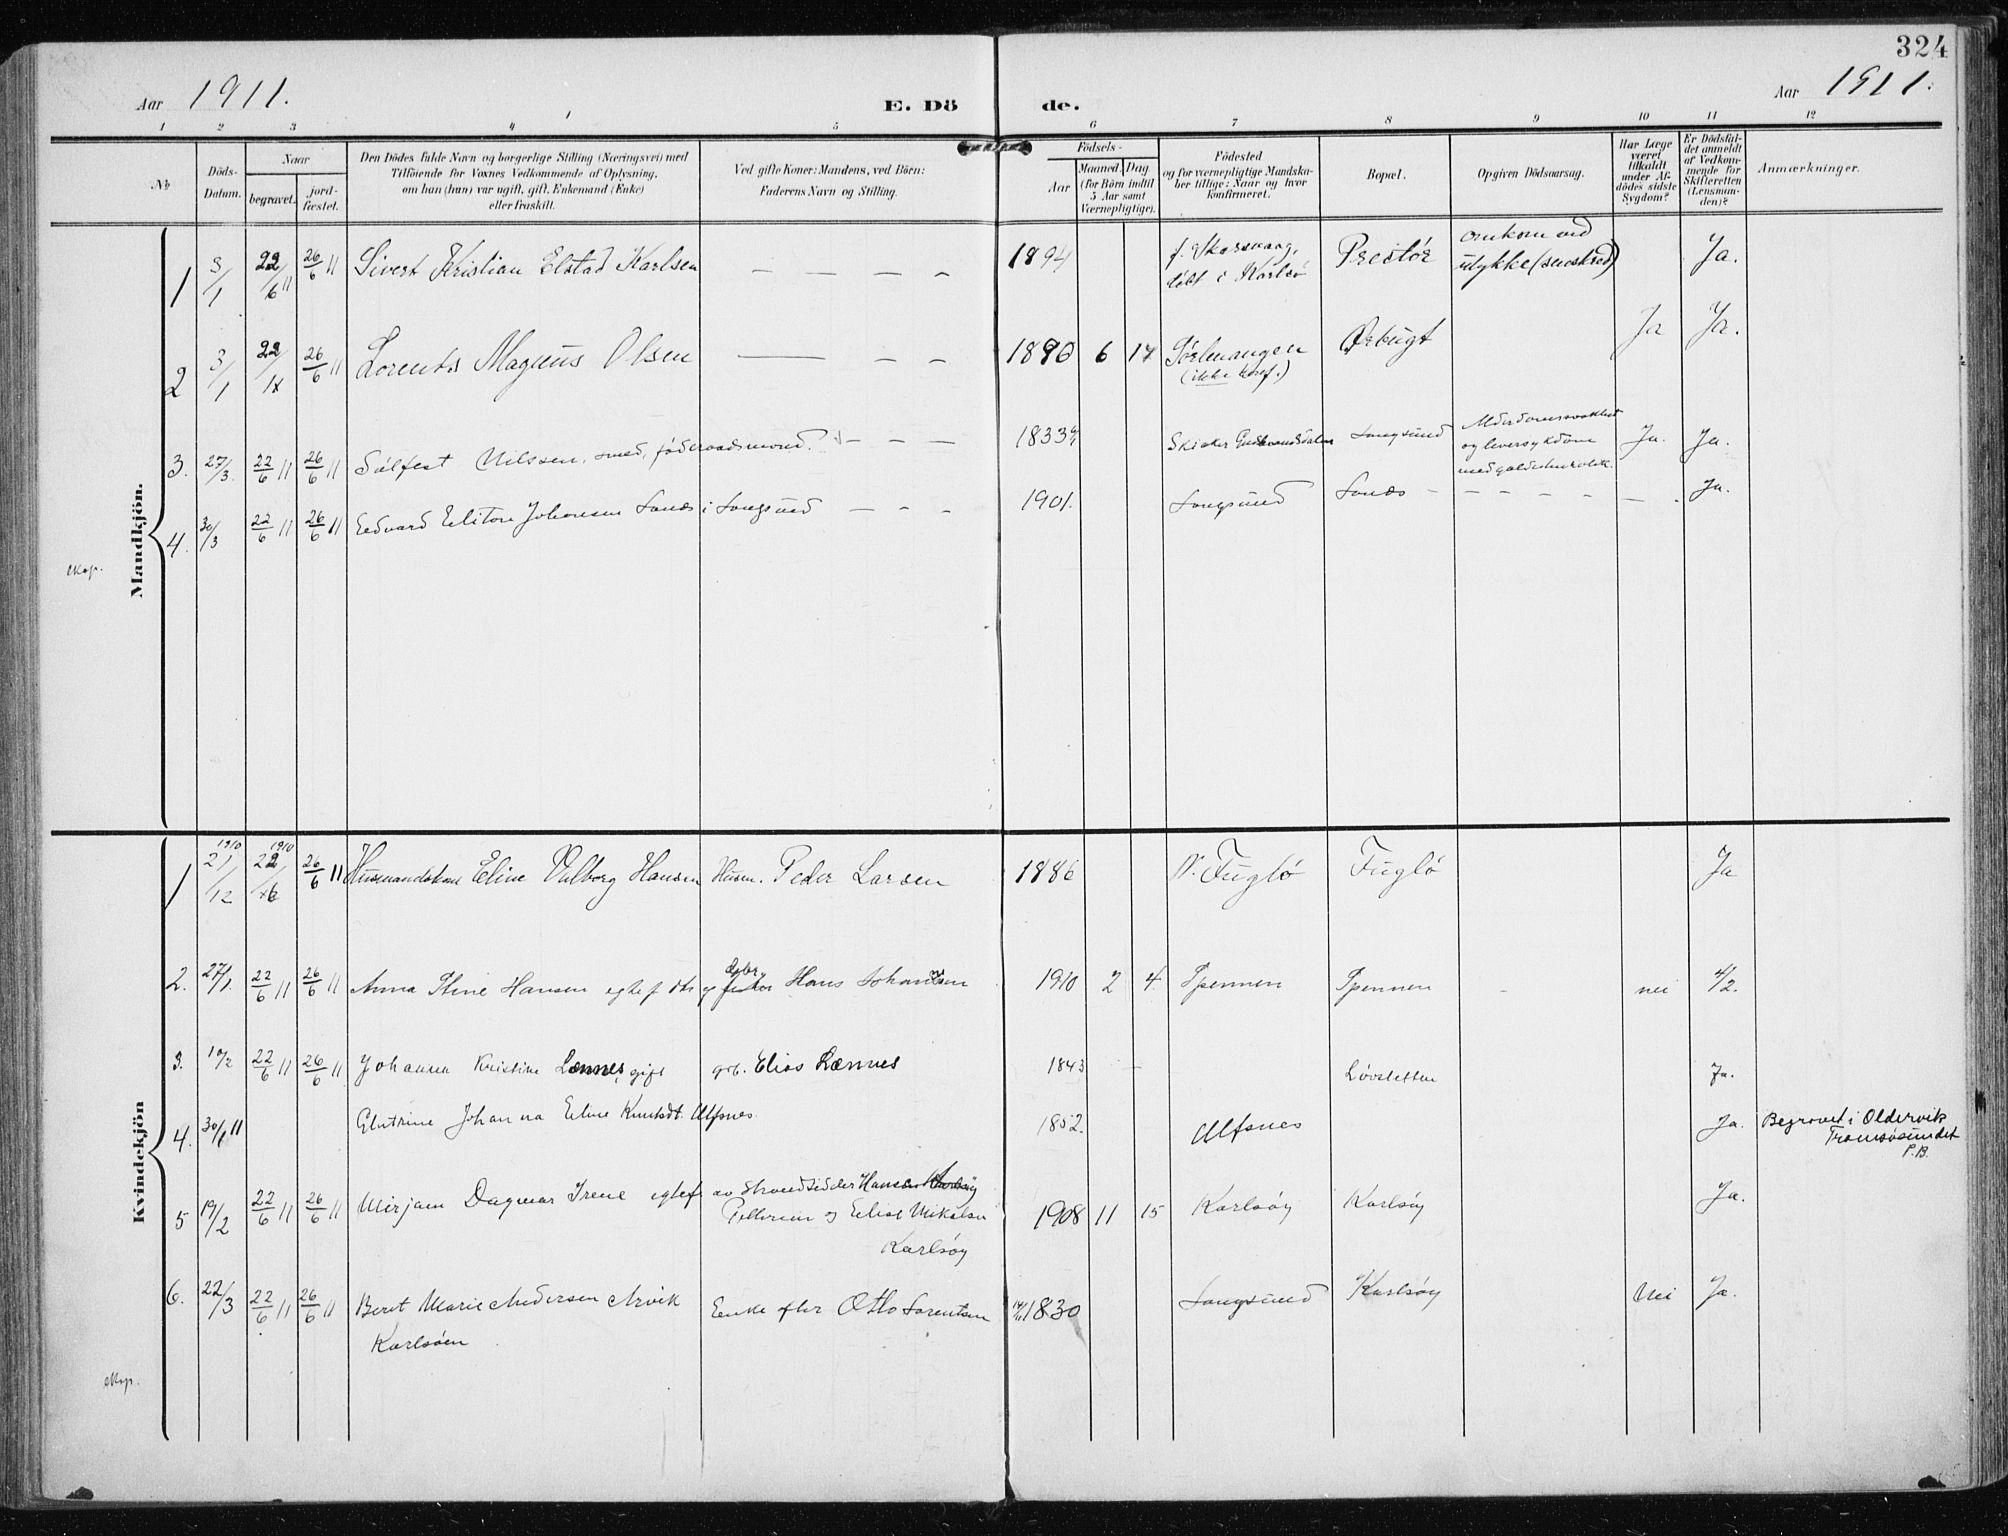 324
Aar 1911.
E. Dö de.
Aar 1911.
1 2 3 4 5 6 7 8 9 10 11 12
No
Döds-Datum.
Naar
begravet.
jord-fæstet.
Den Dödes fulde Navn og borgerlige Stilling (Næringsvei) med
Tilföiende for Voxnes Vedkommende af Oplysning,
om han (hun) var ugift, gift, Enkemand (Enke)
eller fraskilt.
Ved gifte Koner: Mandens, ved Börn:
Faderens Navn og Stilling.
Födsels-
Aar
Maaned. Dag
(for Börn indtil
5 Aar samt
Værnepligtige).
Födested
og for værnepligtige Mandska-
ber tillige: Naar og hvor
konfirmeret.
Bopæl.
Opgiven Dödsaarsag.
Har Læge
været
tilkaldt
under Af-
dödes sidste
Sygdom?
Er Dödsfal-
det anmeldt
af Vedkom-
mende for
Skifteretten
(Lensman-
den)?
Anmærkninger.
Mandkjön.
1 3/1 22/6 11 26/6 11 Sivert Kristian Elstad Karlsen — — — — 1894 f. Skarsvaag, döbt i Karlsö Prestör omkom ved ulykke (sneskred) Ja.
2 3/1 22/ 26/6 11 Lorents Magnus Olsen — — — 1890 6 17 Sörlenangen (ikke konf.) Ørbugt Ja Ja.
3. 27/3 22/6 11 26/6 11 Sölfest Nilssen, smed, föderaadsmand. — — — 1833 Skiaker Gudbrandsdalen Langsund Alderdomssvakhet og leversykdom med Ja. Ja.
4. 30/3 22/6 11 26/6 11 Edvard Johansen Sonæs i Langsund — — — 1901. Langsund Sonæs — — — — — — Ja.
ekop.
Kvindekjön
1 1910 21/12 1910 22/ 26/6 11 Husmandskone Eline Valborg Hansen Husm. Peder Larsen 1886 N. Fuglö Fuglö Ja
2. 27/1 22/6 11 26/6 11 Anna Stine Hansen egtef. dtr. Hans Johansen 1910 2 4 Spennen Spennen — nei 4/2.
3. 10/2 22/6 11 26/6 11 Johanna Kristine Lænnes, gift grb. Elias Lænnes 1843 — Lövsletten Ja.
4. 30/1 11 Johanna Eline Knutsdt. Ulfsnes. 1852. Ulfsnes Ja. Begravet i Oldervik
Tromsösundet
P.B.
5 19/2 22/6 11 26/6 11 Mirjam Dagmar Irene egtef. av strandsidder Hans
Pettersen og Mikalsen
Karlsöy 1908 11 15 Karlsöy Karlsöy Ja.
6. 22/3 22/6 11 26/6 11 Beret Marie Andersen Arvik
Karlsöen Enke efter Otto Lorentsen 1830 Langsund Karlsöy Nei Ja.
ekop.